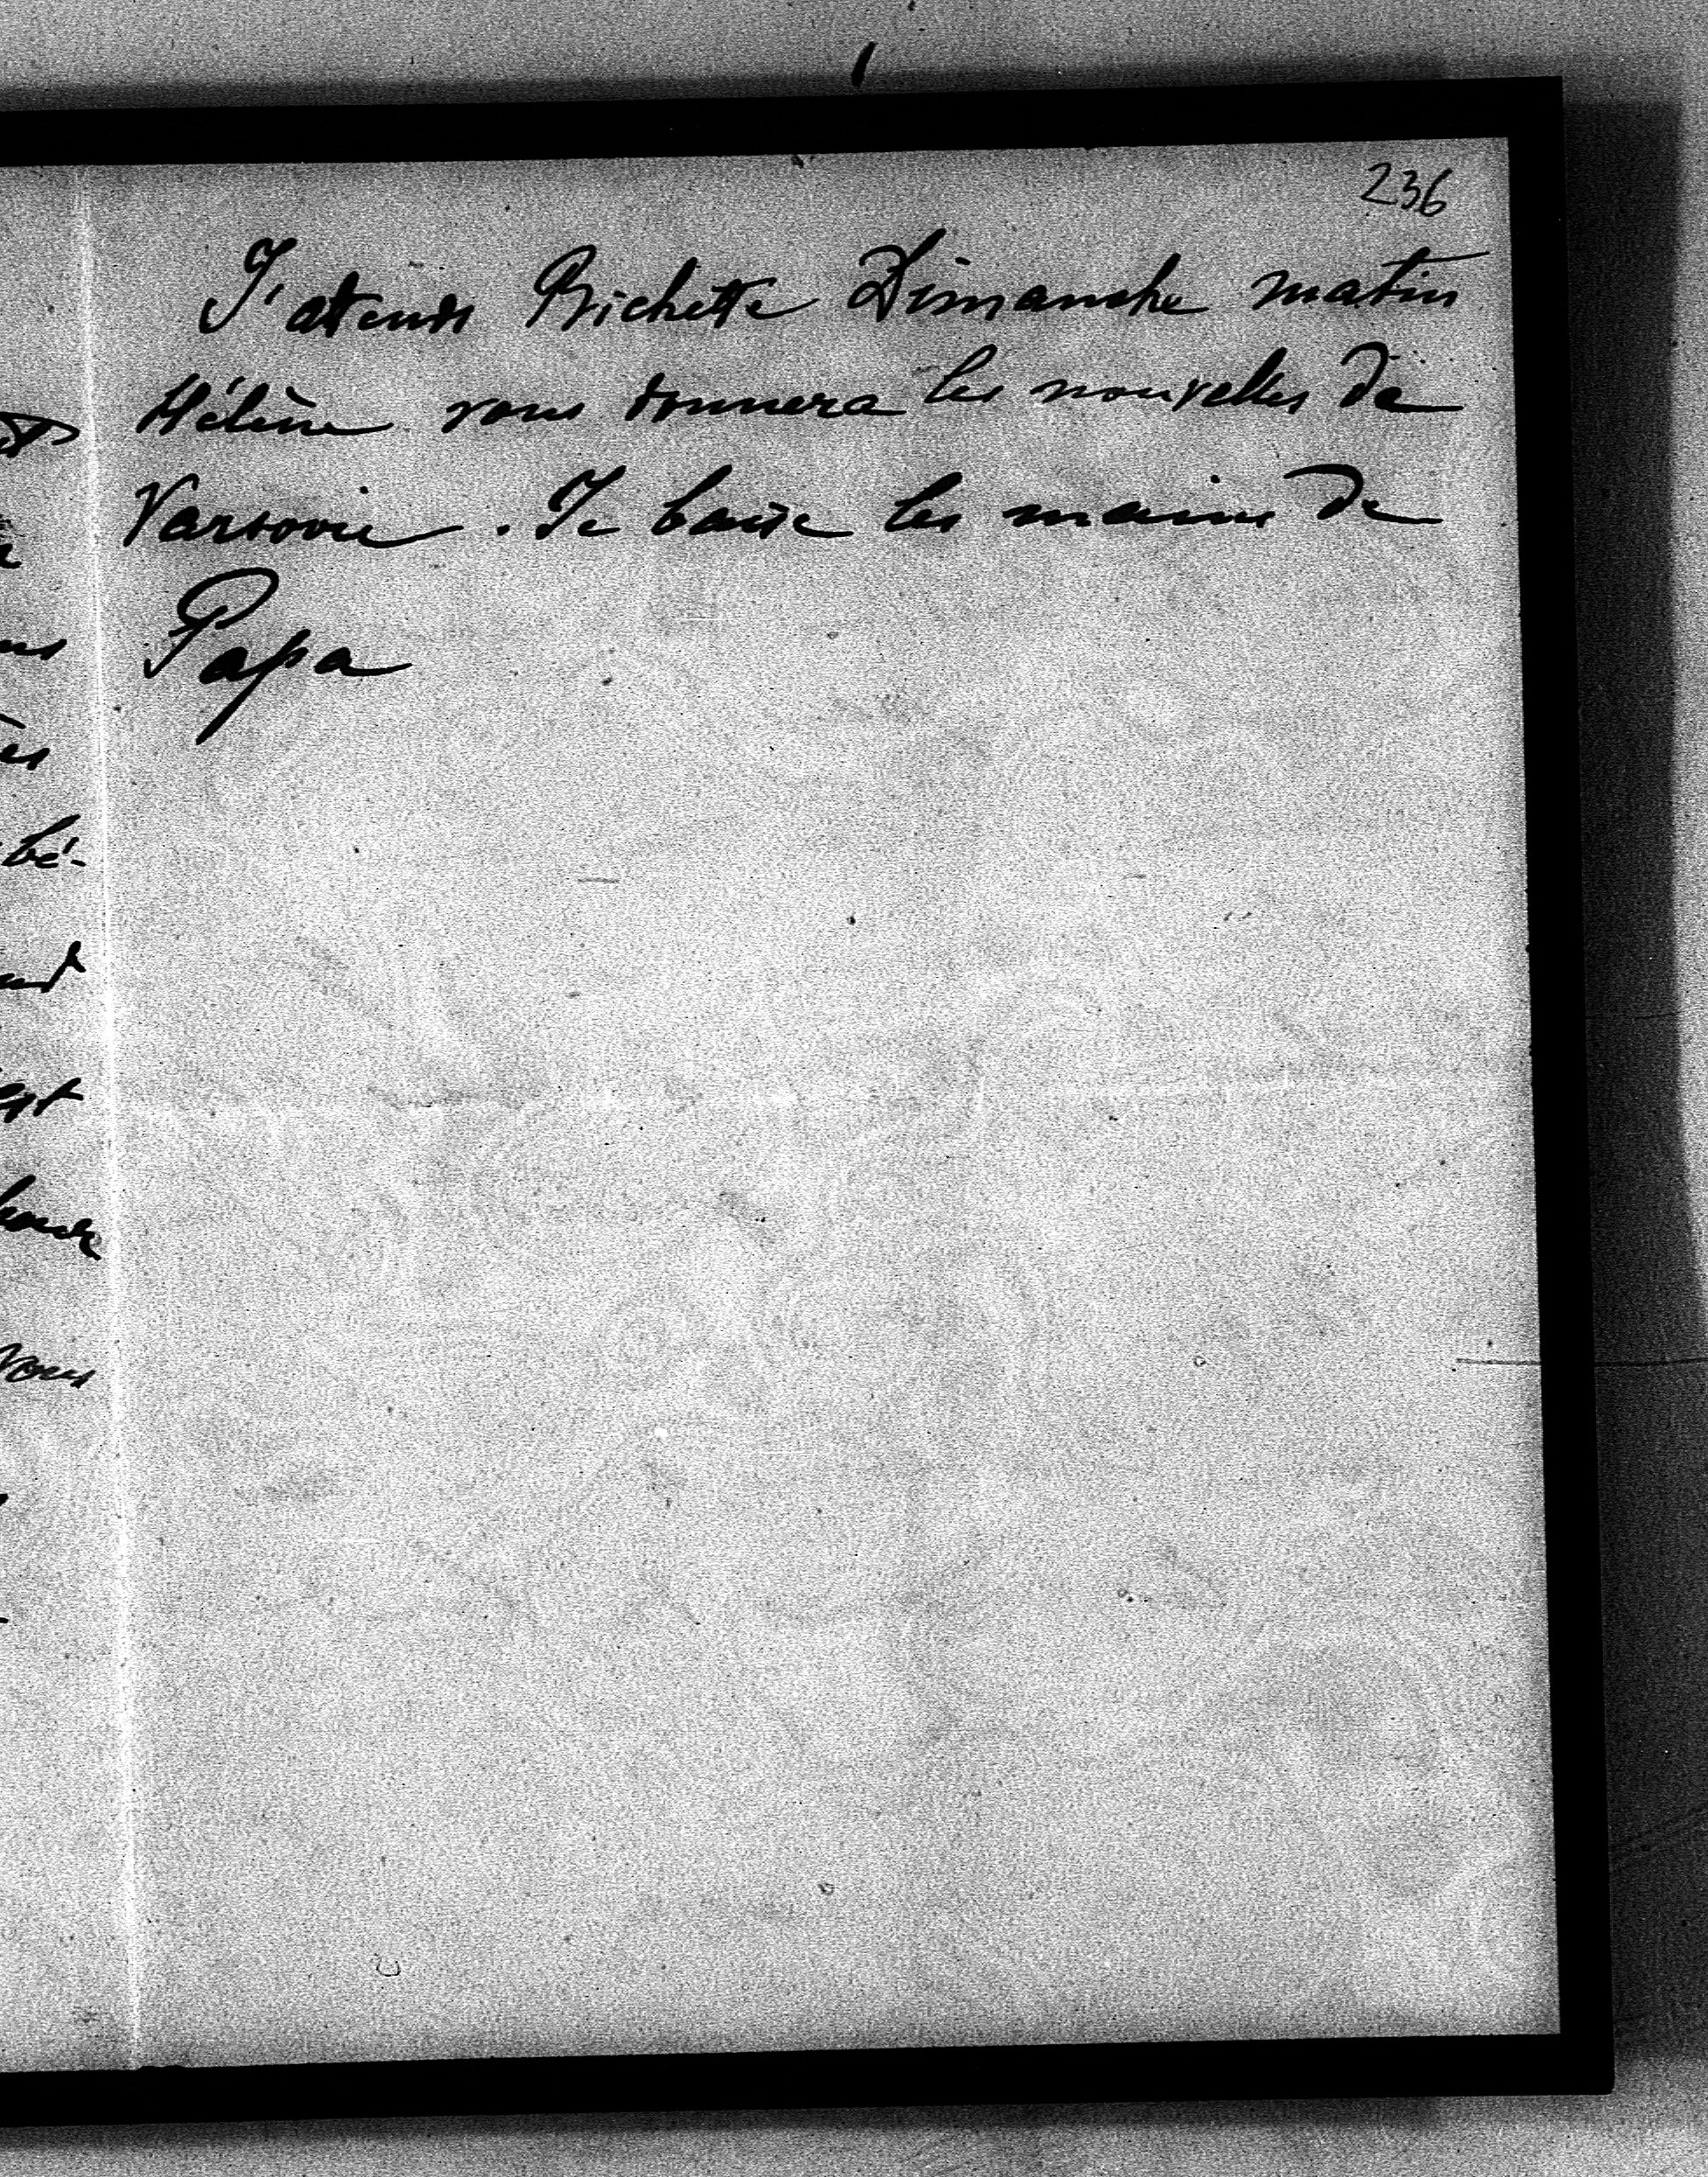 236
J'attends Bichette Dimanche matin
Hélène vous donnera les nouvelles de
Varsovie. Je baise les mains de
Papa
bé-
est
vous